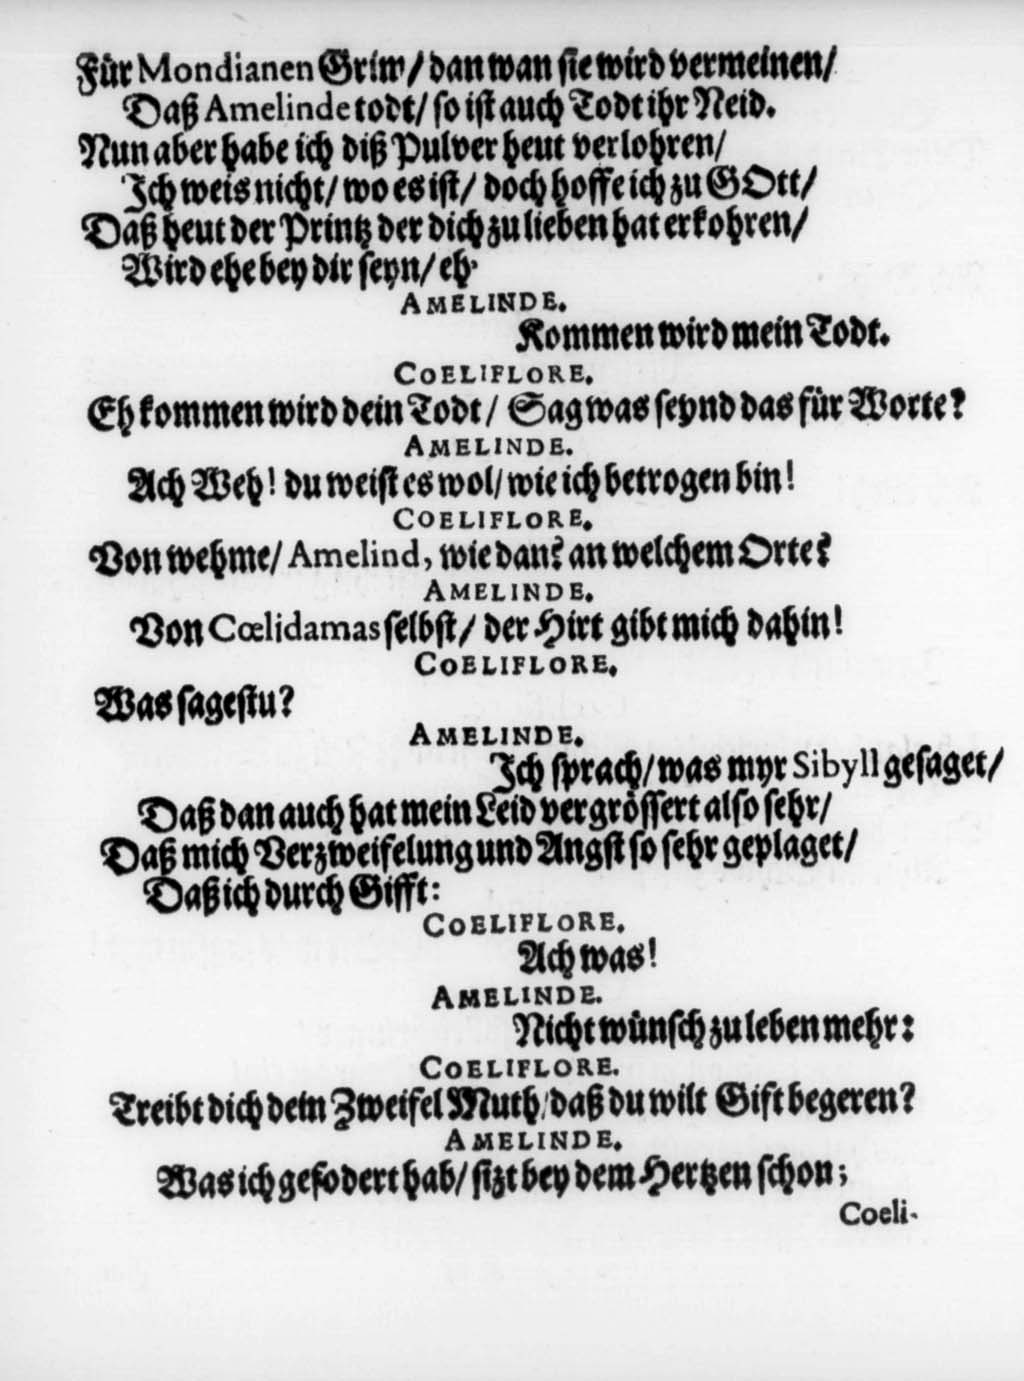 Für Mondianen Grim / dan wan sie wird vermeinen /
Daß Amelinde todt / so ist auch Todt ihr Neid.
Nun aber habe ich diß Pulver heut verlohren /
Ich weis nicht / wo es ist / doch hoffe ich zu GOtt /
Daß heut der Printz der dich zu lieben hat erkohren /
Wird ehe bey dir seyn / eh
AMELINDE.
Kommen wird mein Todt.
COELIFLORE.
Eh kommen wird dein Todt / Sag was seynd das für Worte?
AMELINDE.
Ach Weh! du weist es wol / wie ich betrogen bin!
COELIFLORE.
Von wehme / Amelind, wie dan? an welchem Orte?
AMELINDE.
Von Cœlidamas selbst / der Hirt gibt mich dahin!
COELIFLORE.
Was sagestu?
AMELINDE.
Ich sprach / was myr Sibyll gesaget /
Daß dan auch hat mein Leid vergrössert also sehr /
Daß mich Verzweifelung und Angst so sehr geplaget /
Daß ich durch Gifft:
COELIFLORE.
Ach was!
AMELINDE.
Nicht wünsch zu leben mehr:
COELIFLORE.
Treibt dich dein Zweifel Muth / daß du wilt Gift begeren?
AMELINDE.
Was ich gefodert hab / sizt bey dem Hertzen schon;
Coeli-